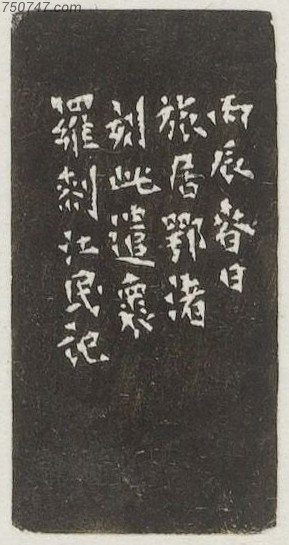 750747.com
丙辰春日
旅居鄂渚
刻此遣褱
羅刹江民記